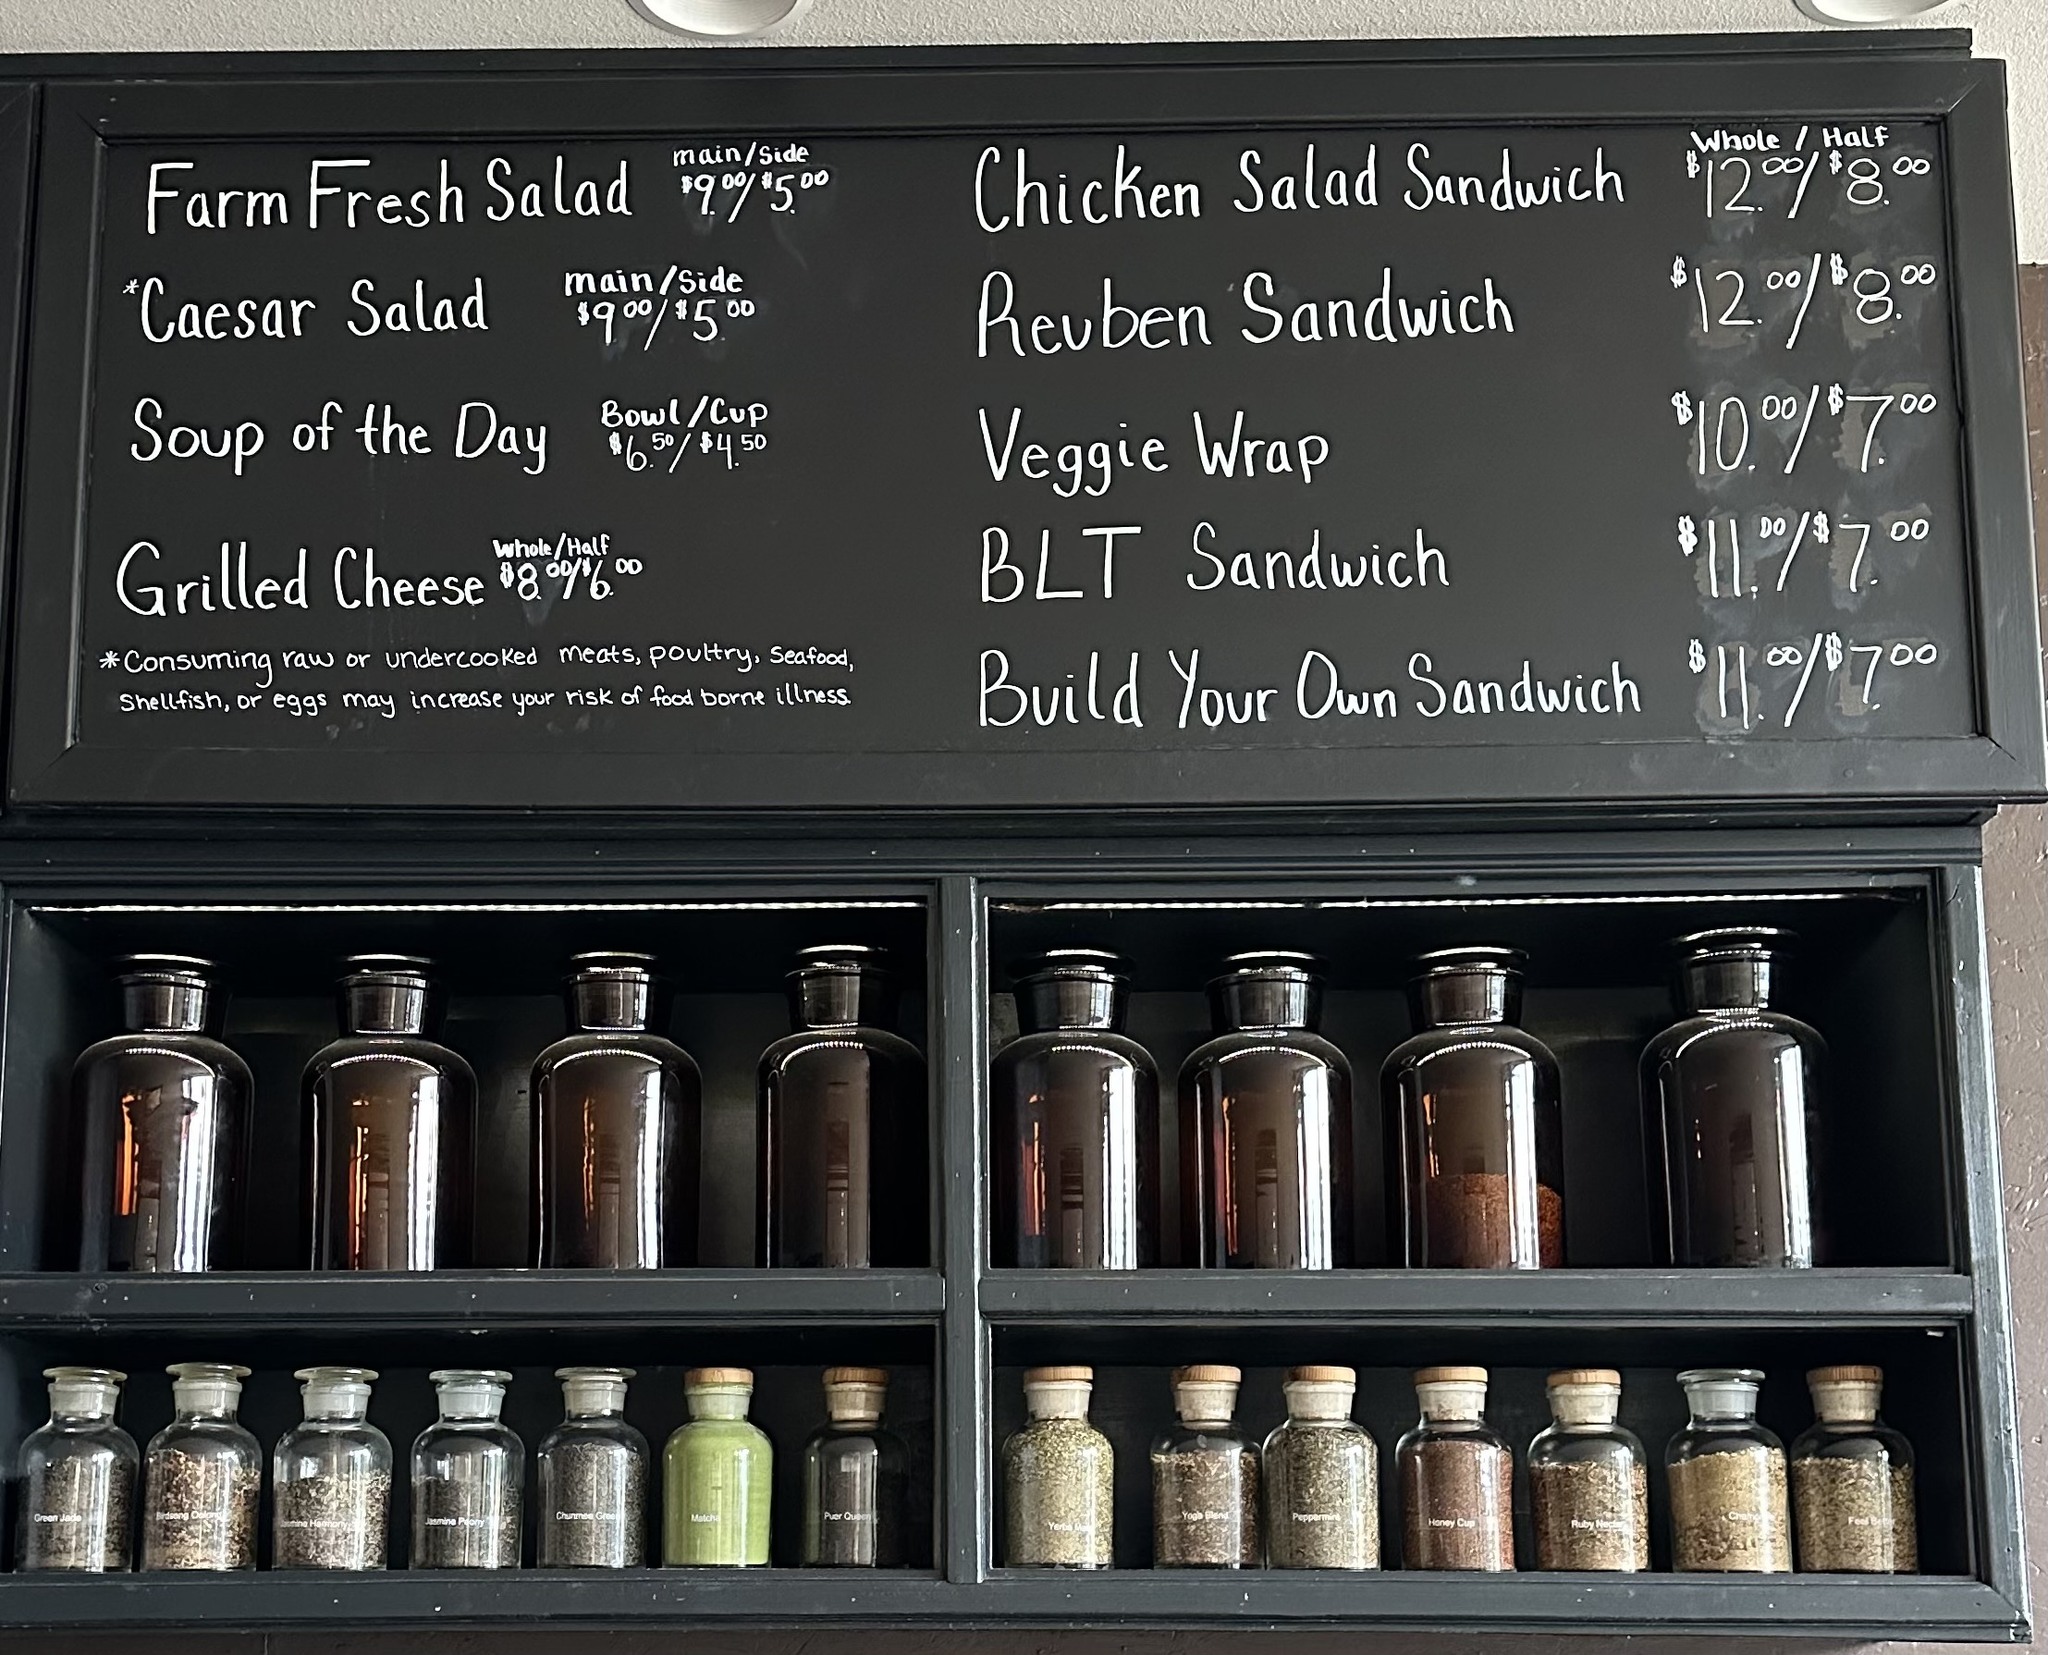 Farm Fresh Salad
main/Side
$9.00/$5.00
*Caesar Salad
main/Side
$9.00/$5.00
Soup of the Day
Bowl/Cup
$6.50/$4.50
Grilled Cheese
Whole/Half
$8.00/$6.00
*Consuming raw or undercooked meats, poultry, Seafood,
Shellfish, or eggs may increase your risk of food borne illness.
Whole / Half
Chicken Salad Sandwich $12.00/$8.00
Reuben Sandwich $12.00/$8.00
Veggie Wrap $10.00/$7.00
BLT Sandwich $11.00/$7.00
Build Your Own Sandwich $11.00/$7.00
Green Jade
Birdsong Oolong
Jasmine Harmony
Jasmine Peony
Chunmee Green
Matcha
Puer Queen
Yerba
Yoga Blend
Peppermint
Honey Cup
Ruby Nectar
Feel